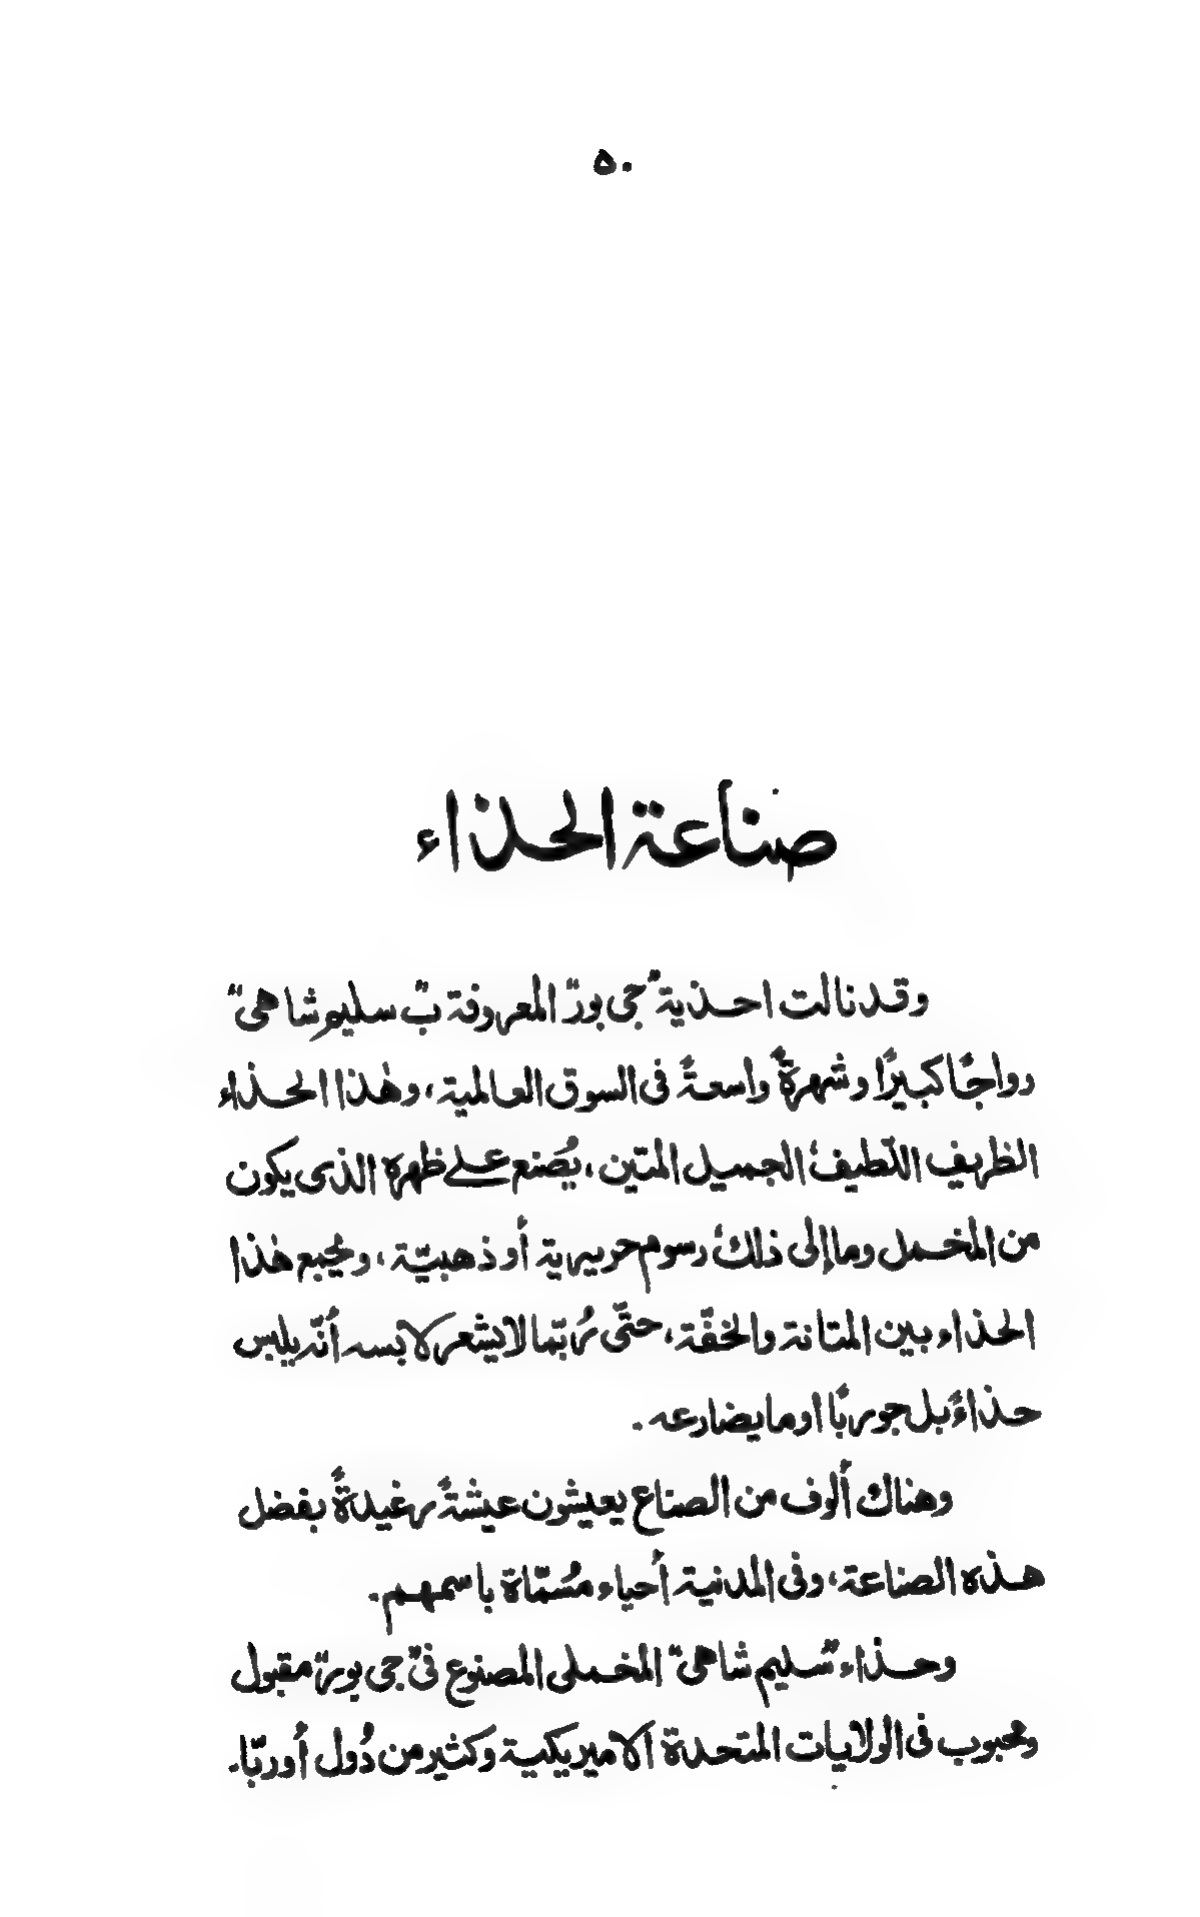 ٥٠
صناعة الحذاء
وقد نالت احذية "جى بور" المعروفة ب" سليم شاهى"
رواجًا كبيرًا وشهرةً واسعةً فى السوق العالمية، وهٰذا الحذاء
الظريف اللّطيف الجميل المتين، يُصَنع على ظهره الذى يكون
من المخمل وما إلى ذلك رسوم حريرية أو ذهبيّة، ويجمع هٰذا
الحذاء بين المتانة والخفّة، حتّى رُبّما لا يشعر لابسه أنّه يلبس
حذاءً بل جوربًا او ما يضارعه.
وهناك أُلوف من الصناع يعيشون عيشةً رغيدةً بفضل
هذه الصناعة، وفى المدنية أحياء مُسمّاة باسمهم.
وحذاء "سليم شاهى" المخملى المصنوع فى "جى بور" مقبول
ومحبوب فى الولايات المتحدة الاميريكية وكثير من دُول أوربّا.